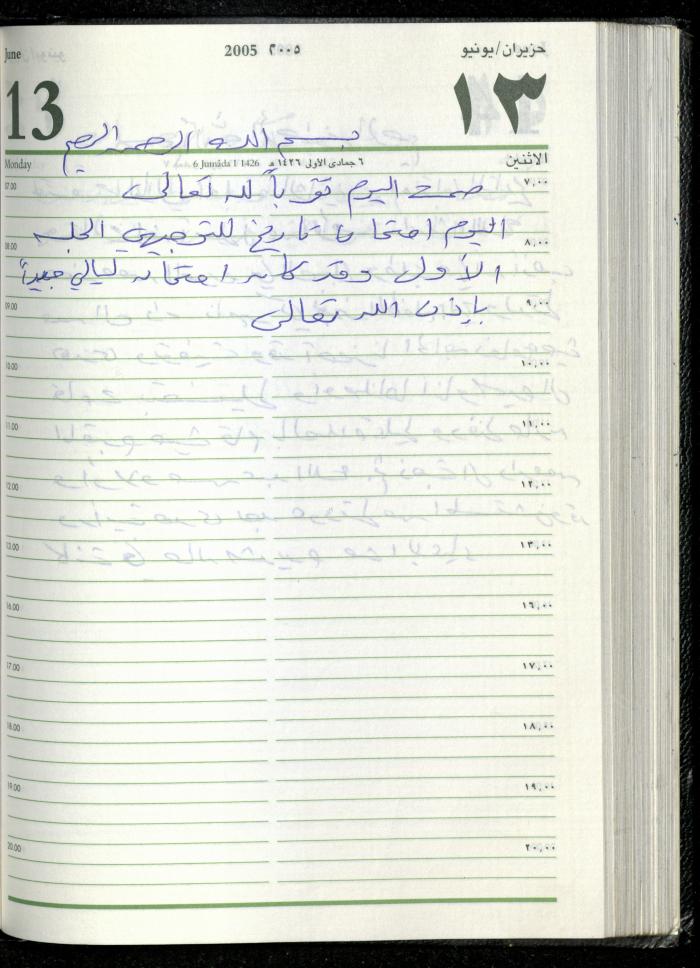 June 2005 ٢٠٠٥ حزيران/يونيو
13 ١٣
بسم الله الرحمن الرحيم
Monday 6 Jumâda I 1426 ٦ جمادى الأولى ١٤٢٦ هـ الاثنين
07.00 صمت اليوم تقرباً لله تعالى ٧,٠٠
08.00 اليوم امتحان تاريخ للتوجيهي الجلسه ٨,٠٠
الأولى وقد كان امتحان ليالي جيداً
09.00 بإذن الله تعالى ٩,٠٠
10.00 ١٠,٠٠
11.00 ١١,٠٠
12.00 ١٢,٠٠
13.00 ١٣,٠٠
16.00 ١٦,٠٠
17.00 ١٧,٠٠
18.00 ١٨,٠٠
19.00 ١٩,٠٠
20.00 ٢٠,٠٠